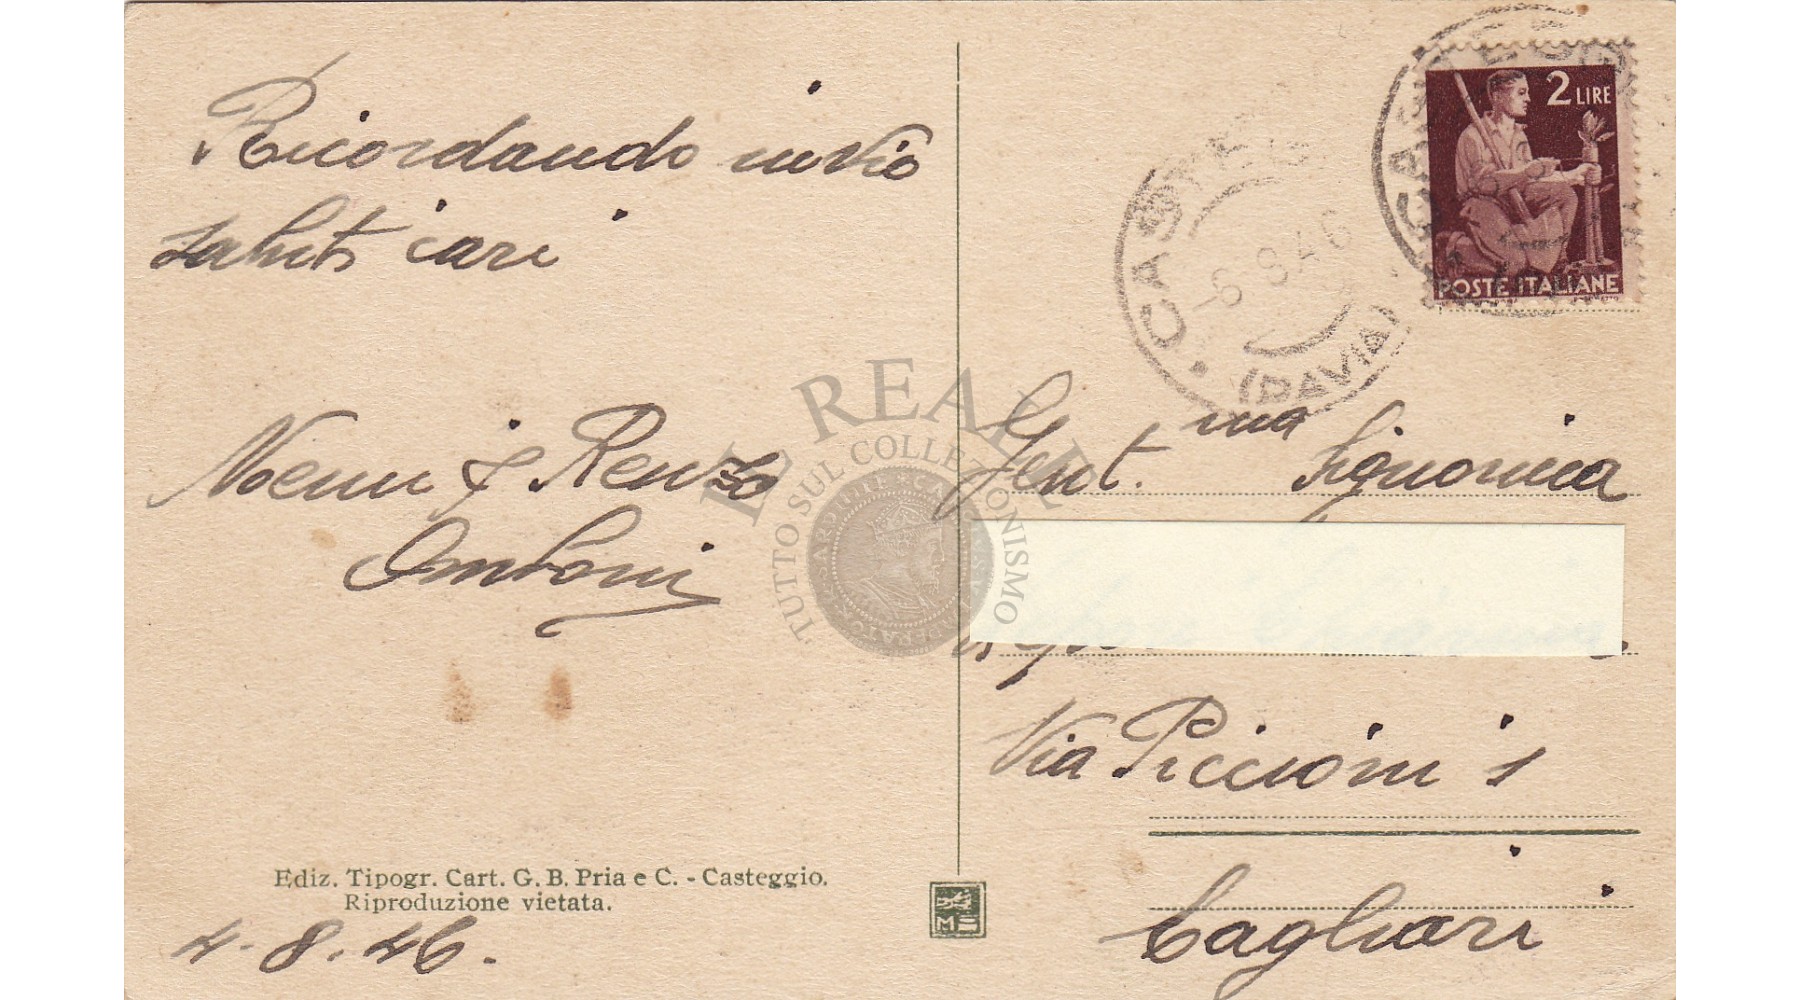 Ricordando invio
saluti cari
Noemi & Renzo
Omboni
Ediz. Tipogr. Cart. G. B. Pria e C. - Casteggio.
Riproduzione vietata.
4.8.46.
2 LIRE
POSTE ITALIANE
CASTEGGIO
-6.8.46
(PAVIA)
Gent.ma Signorina
Via Piccioni 1
Cagliari
IL REALE
TUTTO SUL COLLEZIONISMO